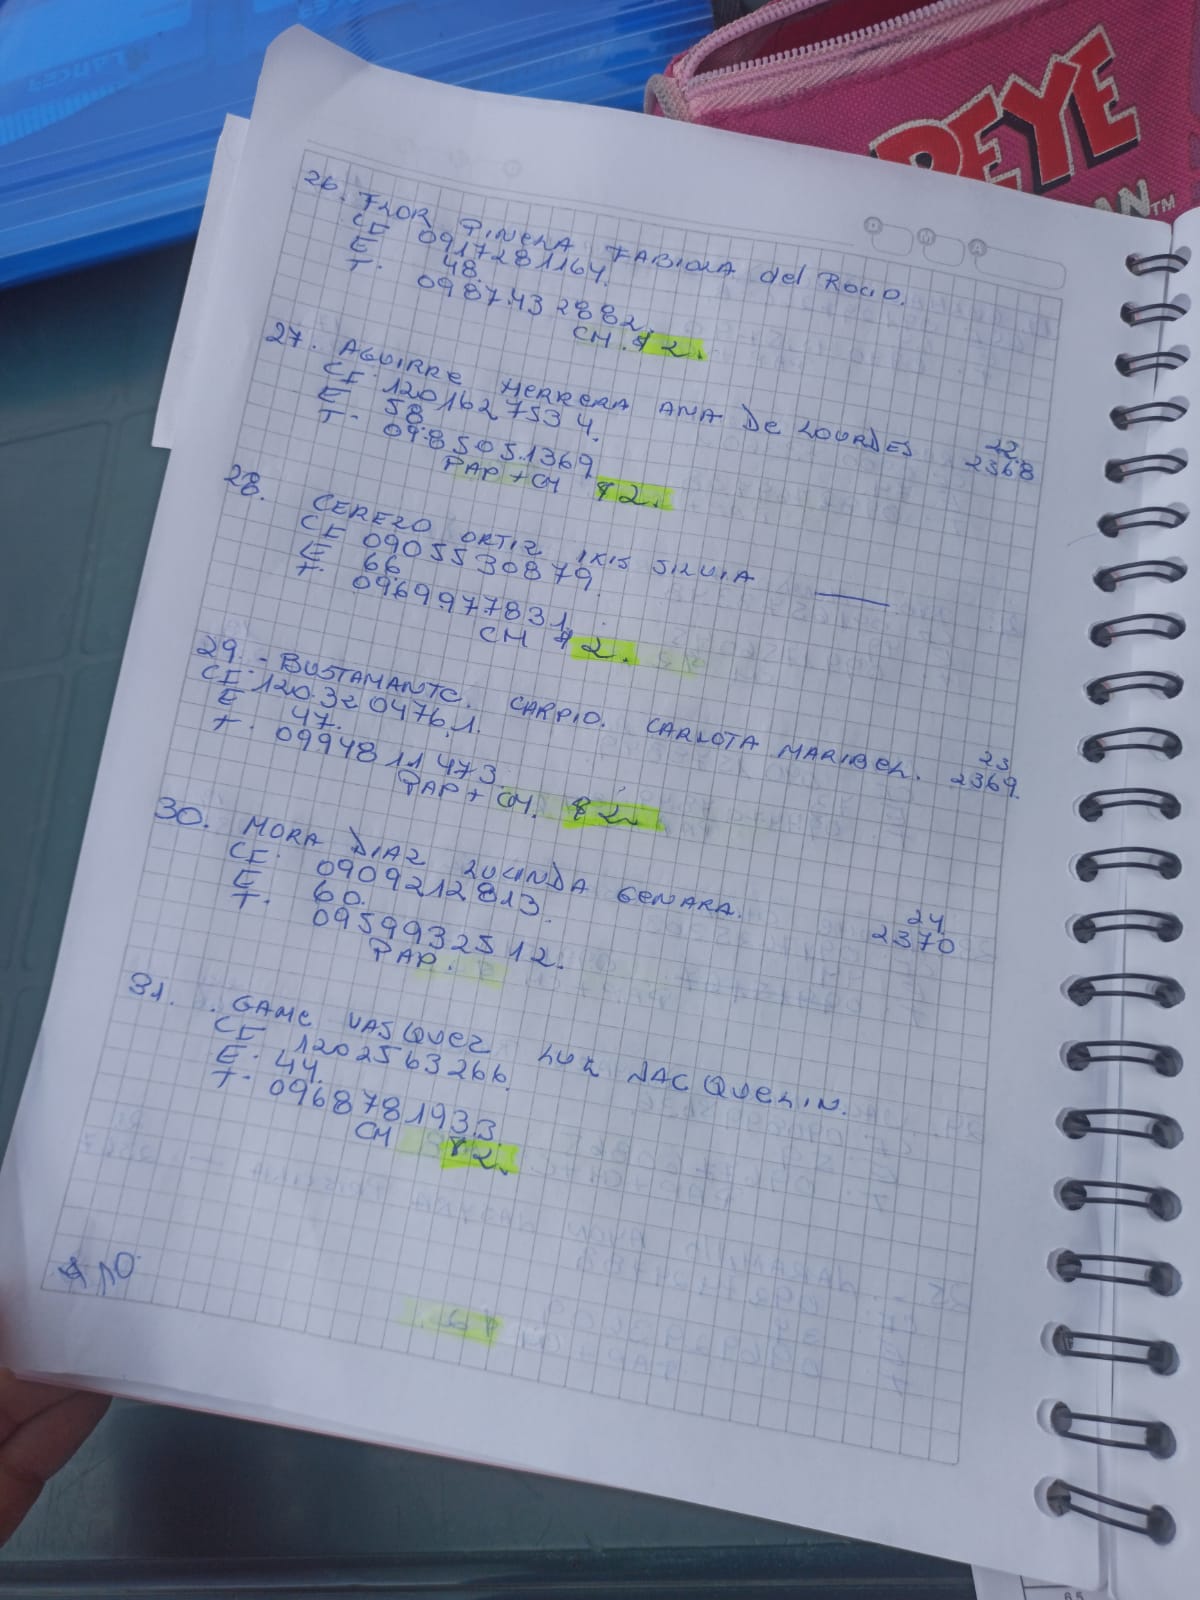 26. FLOR PINELA FABIOLA del Rocio.
CI 0917281164.
E 48.
T. 0987432882.
CM. $2.
27. AGUIRRE HERRERA ANA De LOURDES 22
CI. 1201627534. 2368
E 58.
T. 0985051369
PAP + CM $2.
28. CEREZO ORTIZ IRIS SILVIA
CI 0905530879.
E 66
T. 0969977831.
CM $2.
29. - BUSTAMANTE. CARPIO. CARLOTA MARIBEL. 23
CI 1203204761. 2369.
E 47.
T. 0994811473.
PAP + CM. $2.
30. MORA DIAZ LUCINDA GENARA. 24
CI. 0909212813. 2370
E 60.
T. 0959932512.
PAP.
31. GAME VASQUEZ LUZ JACQUELIN.
CI 1202563266.
E. 44.
T. 0968781933.
CM $2.
$10
PEYE
AN™